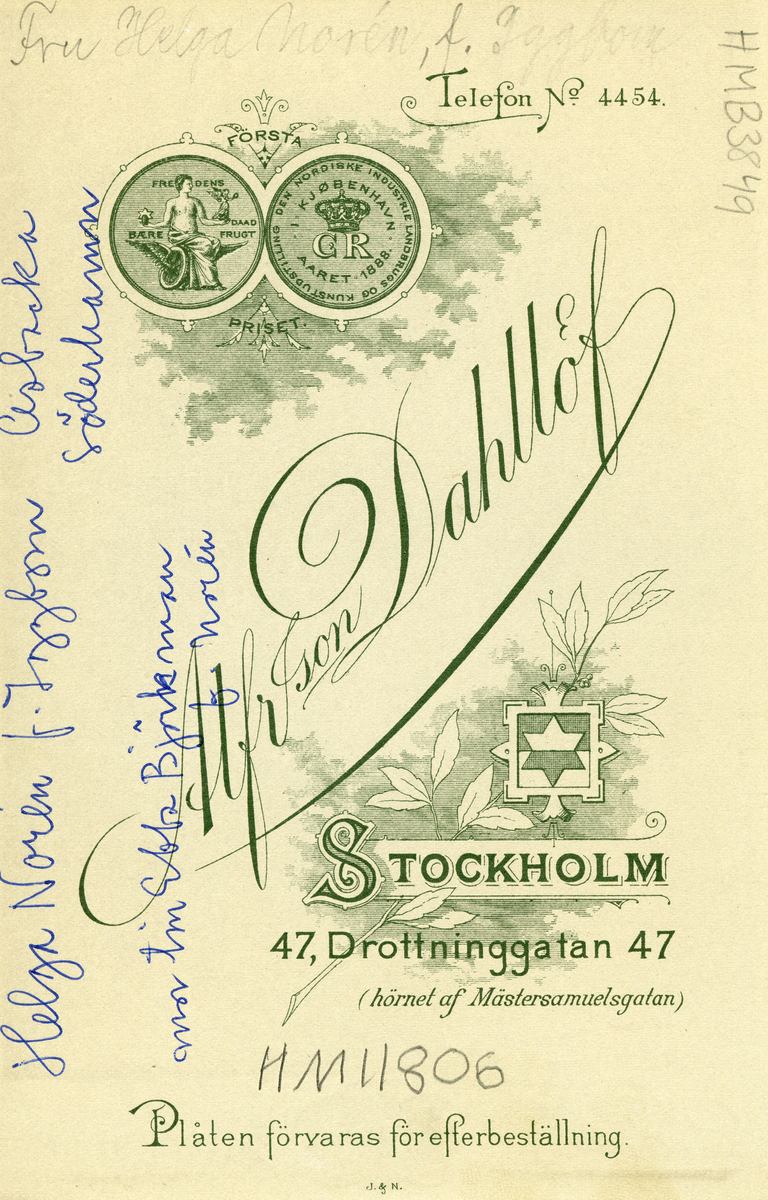 Fru Helga Norén, f. Iggbom
HMB3849
Telefon No 4454.
FÖRSTA
FREDENS DAAD
BÆRE FRUGT
DEN NORDISKE INDUSTRIE LANDBRUGS OG KUNSTUDSTILLING
I KJØBENHAVN
CR
AARET 1888.
PRISET.
Alfrson Dahllöf
STOCKHOLM
47, Drottninggatan 47
(hörnet af Mästersamuelsgatan)
HM11806
Plåten förvaras för efterbeställning.
J. & N.
Helga Norén f. Iggbom
Söderhamn
mor till Ebba Björkman
f. Norén